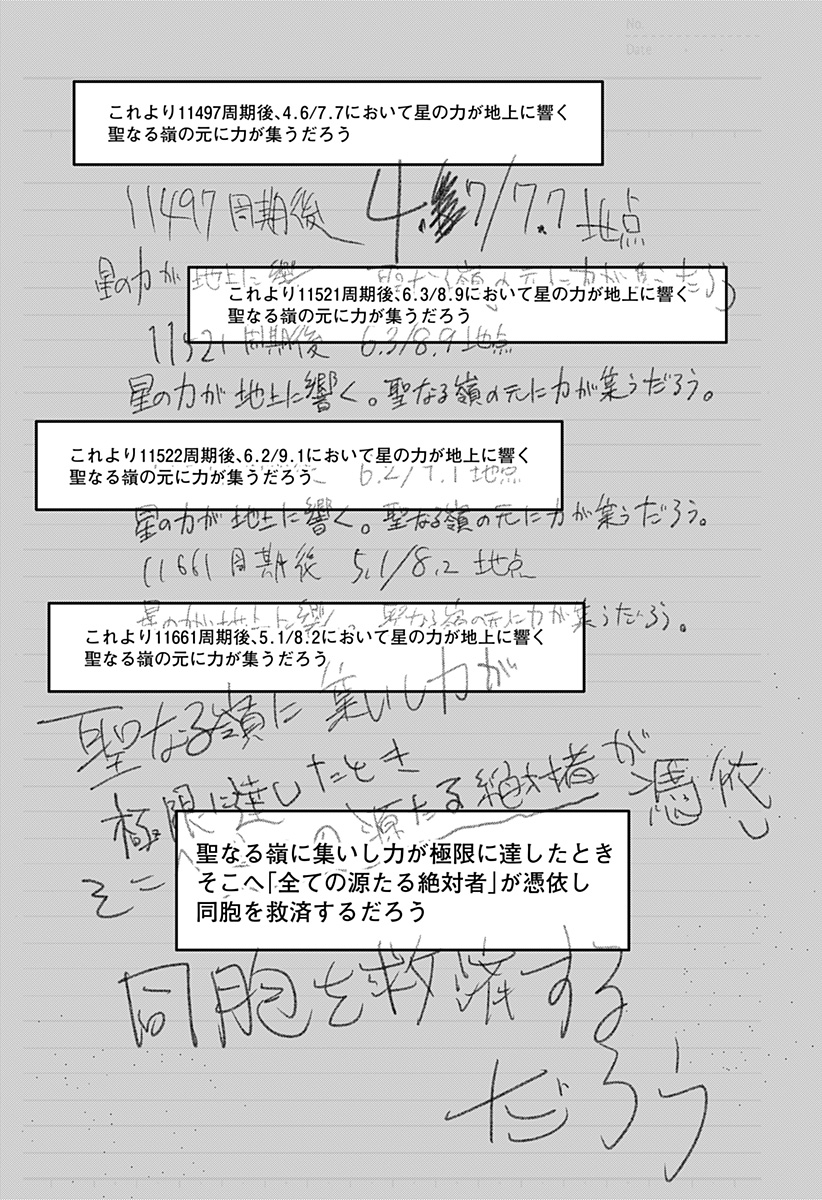 No.
Date
これより11497周期後、4.6/7.7において星の力が地上に響く
聖なる嶺の元に力が集うだろう
11497周期後 4.7/7.7 地点
星の力が地上に響 聖なる嶺の元に力が集うだろう
これより11521周期後、6.3/8.9において星の力が地上に響く
聖なる嶺の元に力が集うだろう
11521周期後 6.3/8.9地点
星の力が地上に響く。聖なる嶺の元に力が集うだろう。
これより11522周期後、6.2/9.1において星の力が地上に響く
聖なる嶺の元に力が集うだろう
6.2/9.1地点
星の力が地上に響く。聖なる嶺の元に力が集うだろう。
11661周期後 5.1/8.2 地点
星の力が地上に響く。聖なる嶺の元に力が集うだろう。
これより11661周期後、5.1/8.2において星の力が地上に響く
聖なる嶺の元に力が集うだろう
聖なる嶺に集いし力が
極限に達したとき
そこへ の源たる絶対者が憑依し
聖なる嶺に集いし力が極限に達したとき
そこへ「全ての源たる絶対者」が憑依し
同胞を救済するだろう
同胞を救済する
だろう